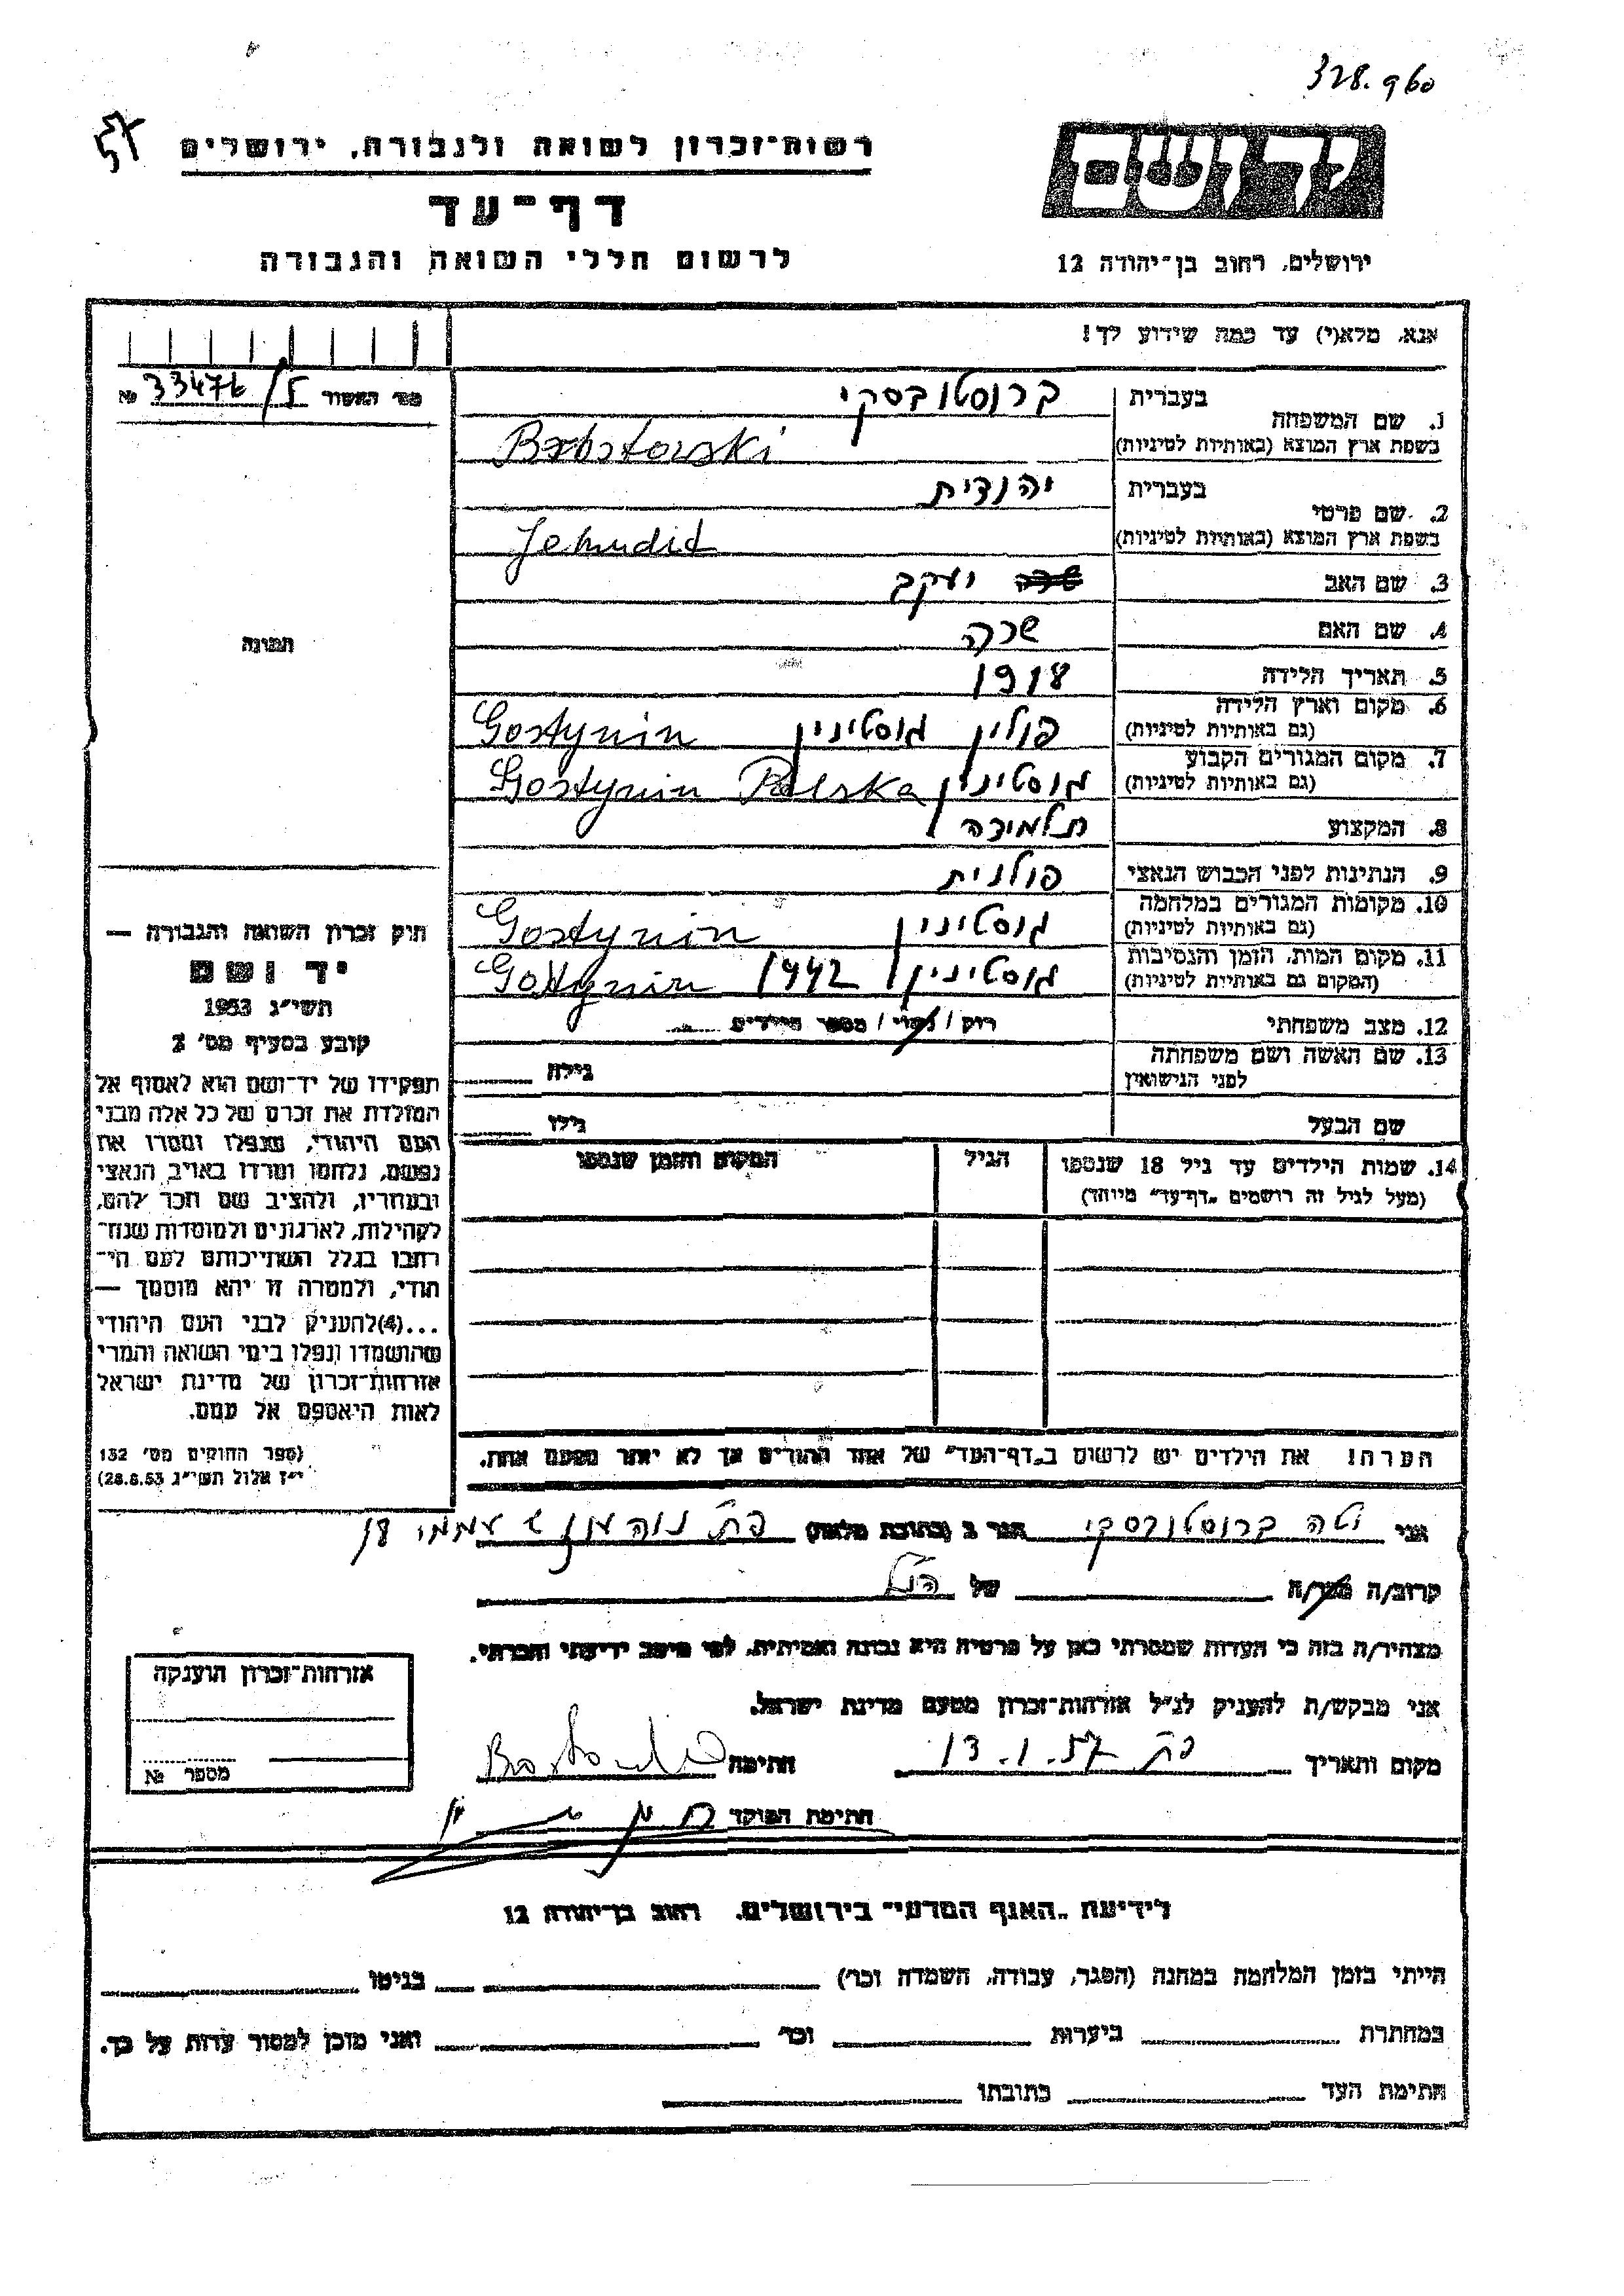 328.960
רשות־זכרון לשואה ולגבורה, ירושלים
דף־עד
לרשום חללי השואה והגבורה
יד ושם
ירושלים, רחוב בן־יהודה 12
אנא, מלא(י) עד כמה שידוע לך!
מס' האשור № 33476/ל
1. שם המשפחה בעברית ברוסטובסקי
בשפת ארץ המוצא (באותיות לטיניות) Brbstowski
2. שם פרטי בעברית יהודית
בשפת ארץ המוצא (באותיות לטיניות) Jehudit
3. שם האב יעקב
4. שם האם שרה
5. תאריך הלידה 1918
6. מקום וארץ הלידה
(גם באותיות לטיניות) פולין גוסטינין Gostynin
7. מקום המגורים הקבוע
(גם באותיות לטיניות) גוסטינין Gostynin Polska
8. המקצוע תלמידה
9. הנתינות לפני הכבוש הנאצי פולנית
10. מקומות המגורים במלחמה
(גם באותיות לטיניות) גוסטינין Gostynin
11. מקום המות, הזמן והנסיבות
(המקום גם באותיות לטיניות) גוסטינין 1942 Gostynin
12. מצב משפחתי רוק / נשוי / מספר הילדים
13. שם האשה ושם משפחתה
לפני הנישואין גילה
שם הבעל גילו
14. שמות הילדים עד גיל 18 שנספו הגיל המקום והזמן שנספו
(מעל לגיל זה רושמים „דף־עד” מיוחד)
הערה! את הילדים יש לרשום ב„דף־העד” של אחד ההורים אך לא יותר מפעם אחת.
תמונה
חוק זכרון השואה והגבורה —
יד ושם
תשי״ג 1953
קובע בסעיף מס' 2
תפקידו של יד־ושם הוא לאסוף אל
המולדת את זכרם של כל אלה מבני
העם היהודי, שנפלו ומסרו את
נפשם, נלחמו ומרדו באויב הנאצי
ובעוזריו, ולהציב שם וזכר להם,
לקהילות, לארגונים ולמוסדות שנח־
רבו בגלל השתייכותם לעם הי־
הודי, ולמטרה זו יהא מוסמך —
...(4)להעניק לבני העם היהודי
שהושמדו ונפלו בימי השואה והמרי
אזרחות־זכרון של מדינת ישראל
לאות היאספם אל עמם.
(ספר החוקים מס' 132
י״ז אלול תשי״ג 28.8.53)
אני יטה ברוסטובסקי הגר ב (כתובת מלאה) פ״ת
קרוב/ה מכר/ה של הנ״ל
מצהיר/ה בזה כי העדות שמסרתי כאן על פרטיה היא נכונה ואמיתית, לפי מיטב ידיעתי והכרתי.
אני מבקש/ת להעניק לנ״ל אזרחות־זכרון מטעם מדינת ישראל.
מקום ותאריך פ״ת 13.1.57 חתימה
חתימת הפוקד
אזרחות־זכרון הוענקה
מספר №
לידיעת „האגף המדעי” בירושלים, רחוב בן־יהודה 12
הייתי בזמן המלחמה במחנה (הסגר, עבודה, השמדה וכו') בגיטו
במחתרת ביערות וכו' ואני מוכן למסור עדות על כך.
חתימת העד כתובתו